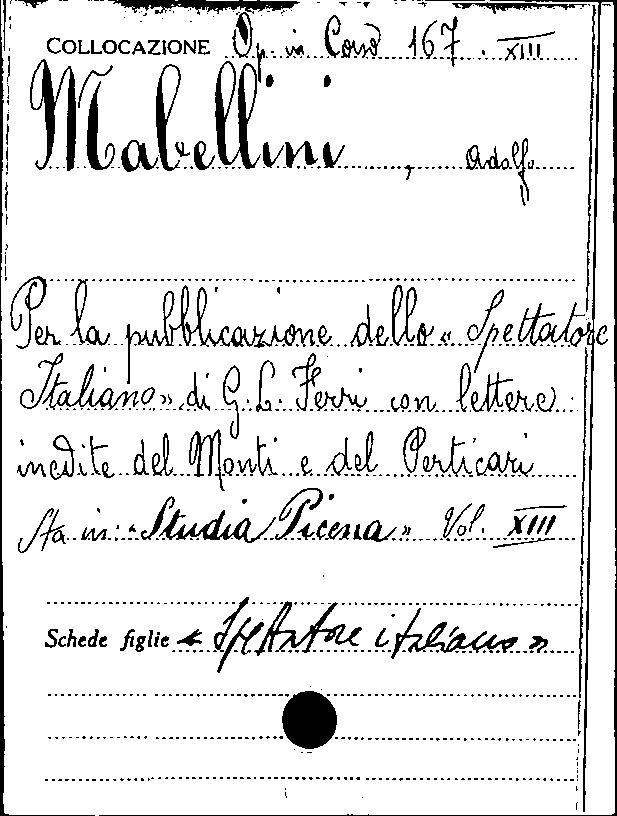 COLLOCAZIONE Op. in Corso 167. XIII
Mabellini, Adolfo
Per la pubblicazione dello « Spettatore
Italiano» di G. L. Ferri con lettere
inedite del Monti e del Perticari
Sta in: «Studia Picena» Vol. XIII
Schede figlie « Spettatore italiano »